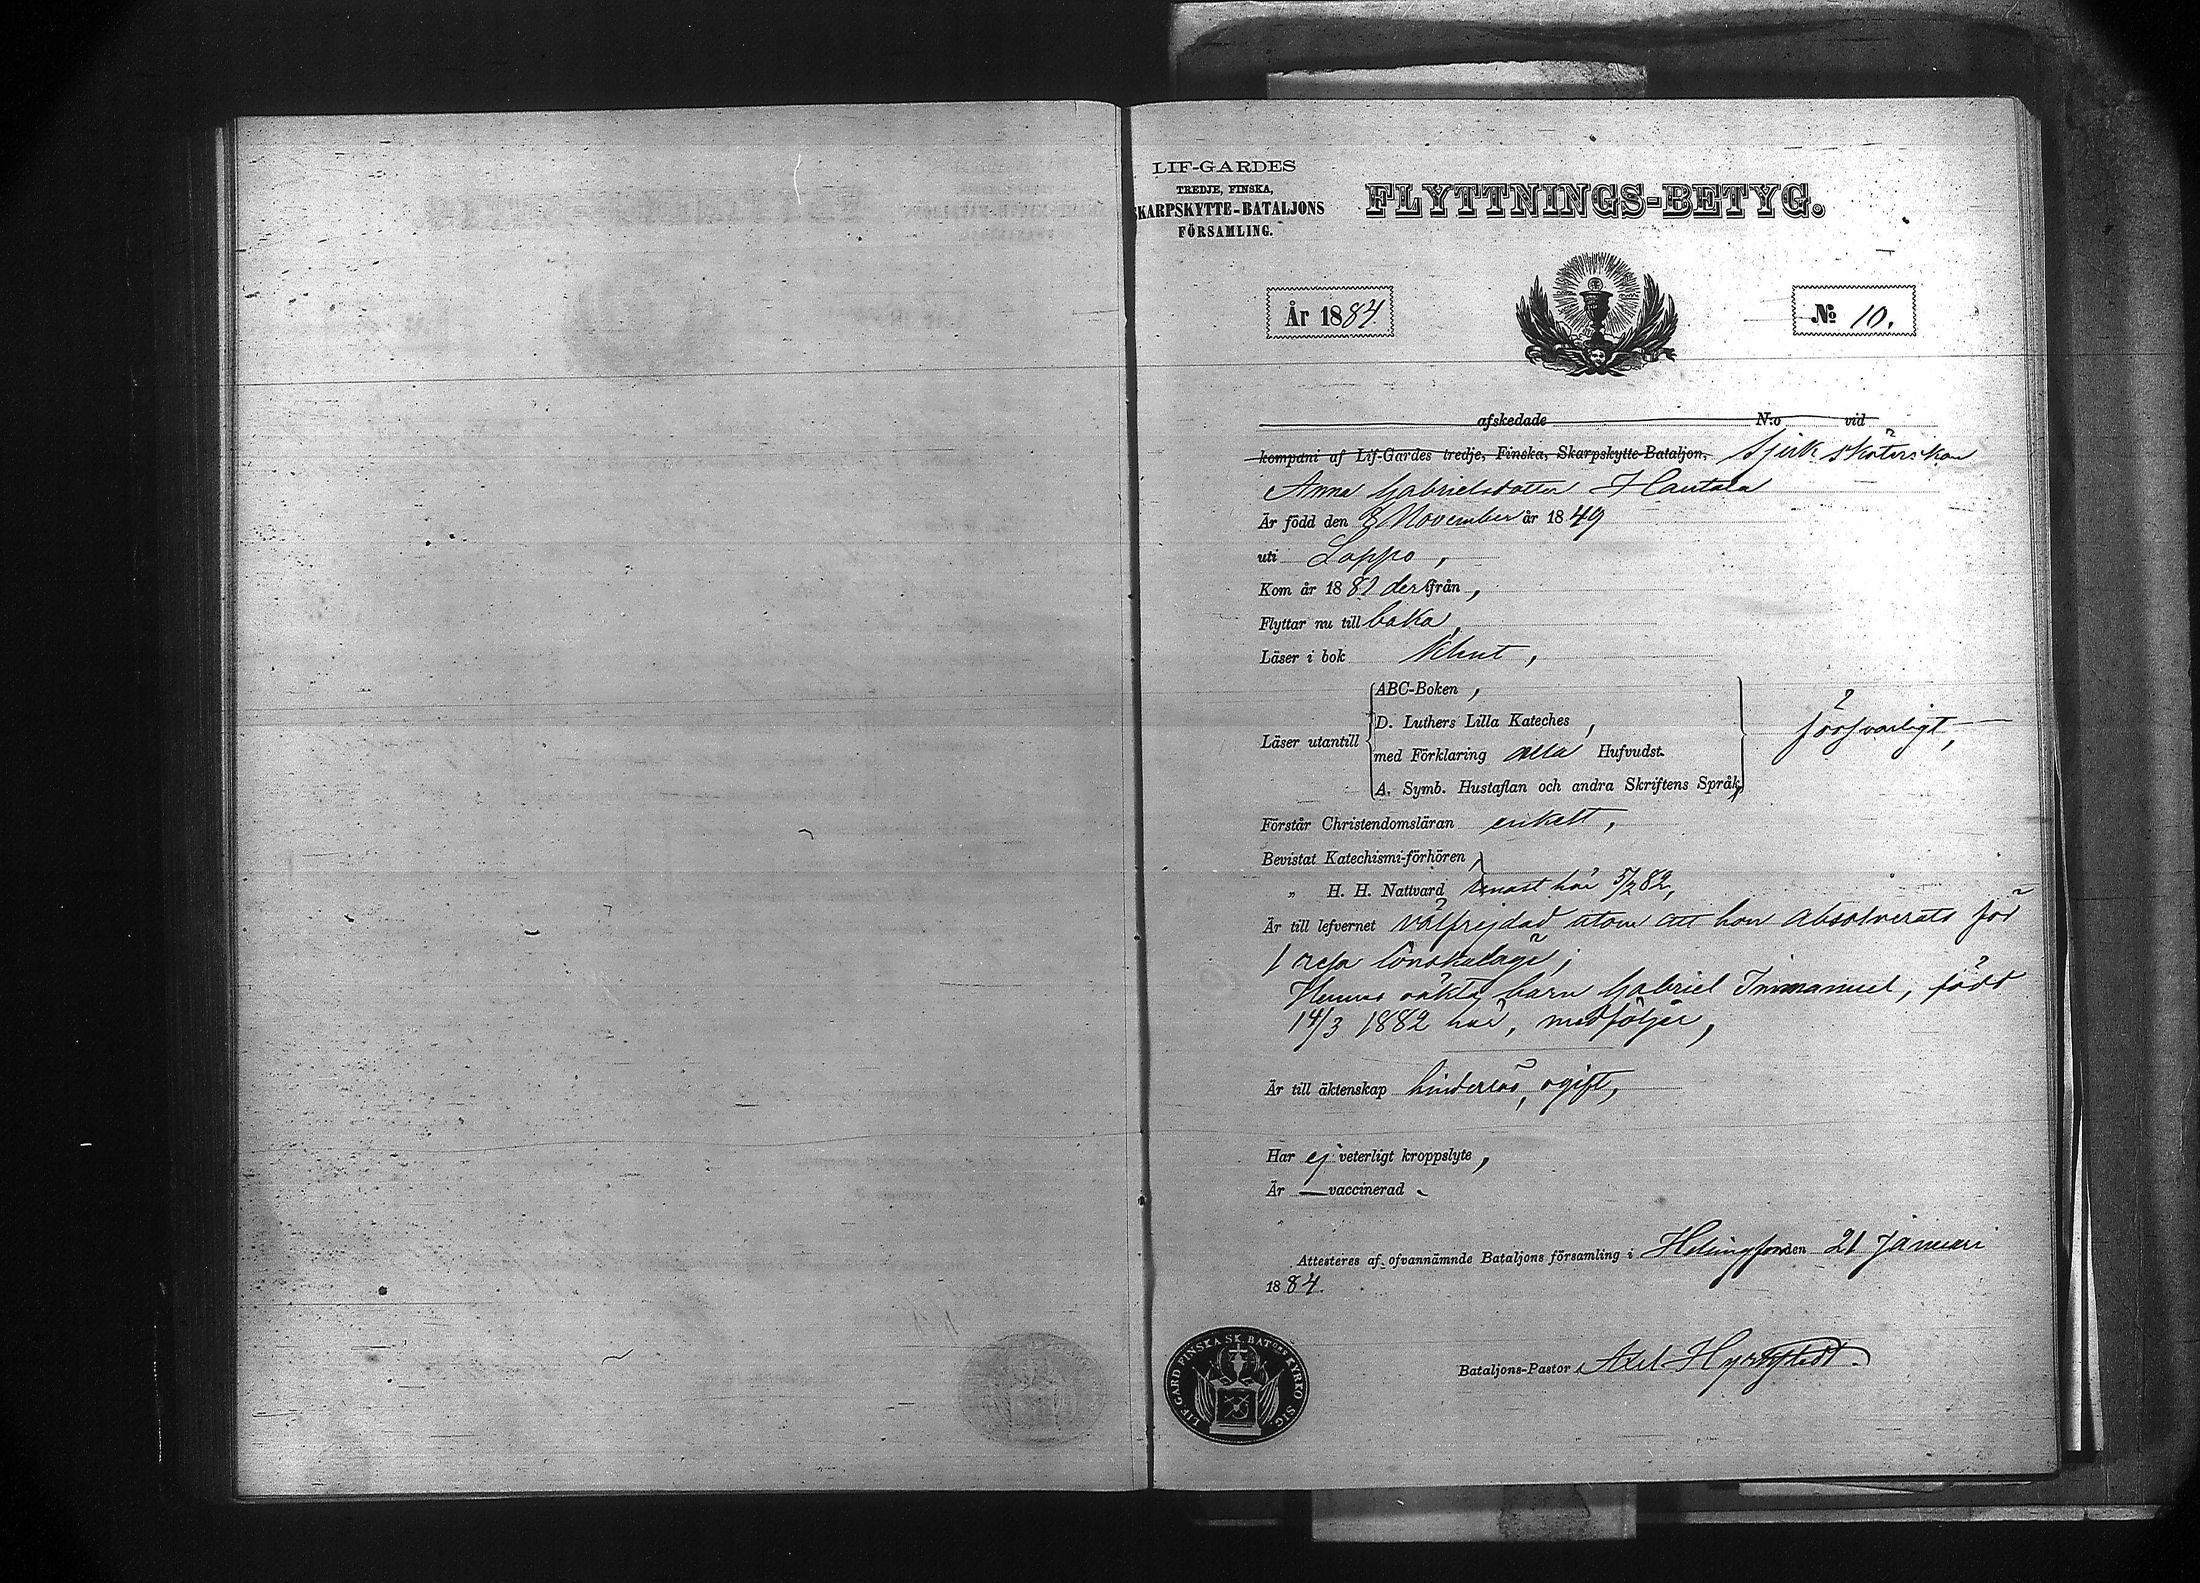 LIF-GARDES
TREDJE, FINSKA,
SKARPSKYTTE-BATALJONS
FÖRSAMLING.
FLYTTNINGS-BETYG.
År 1884
№ 10.
afskedade N:o vid
kompani af Lif-Gardes tredje, Finska, Skarpskytte-Bataljon, Sjuksköterskan
Anna Gabrielsdotter Hautala
Är född den 8 November år 1849
uti Lappo,
Kom år 1882 derifrån,
Flyttar nu till baka,
Läser i bok
ABC-Boken,
D. Luthers Lilla Kateches,
Läser utantill
med Förklaring alla Hufvudst.
försvarligt,
A. Symb. Hustaflan och andra Skriftens Språk,
Förstår Christendomsläran enkelt,
Bevistat Katechismi-förhören
„ H. H. Nattvard senast här 5/2 82,
Är till lefvernet välfrejdad utom att hon absolverats för
1 resa lönskaläge;
Hennes oäkta barn Gabriel Immanuel, född
14/3 1882 här, medföljer,
Är till äktenskap hinderlös, ogift,
Har ej veterligt kroppslyte,
Är — vaccinerad
Attesteres af ofvannämnde Bataljons församling i Helsingfors den 21 Januari
1884.
Bataljons-Pastor Axel
LIF.GARD FINSKA SK.BATONS KYRKO SIG.